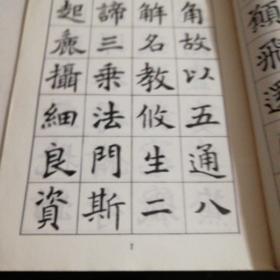 飛
角故以五通八
解名教攸生二
諦三乗法門斯
起麁攝細良資